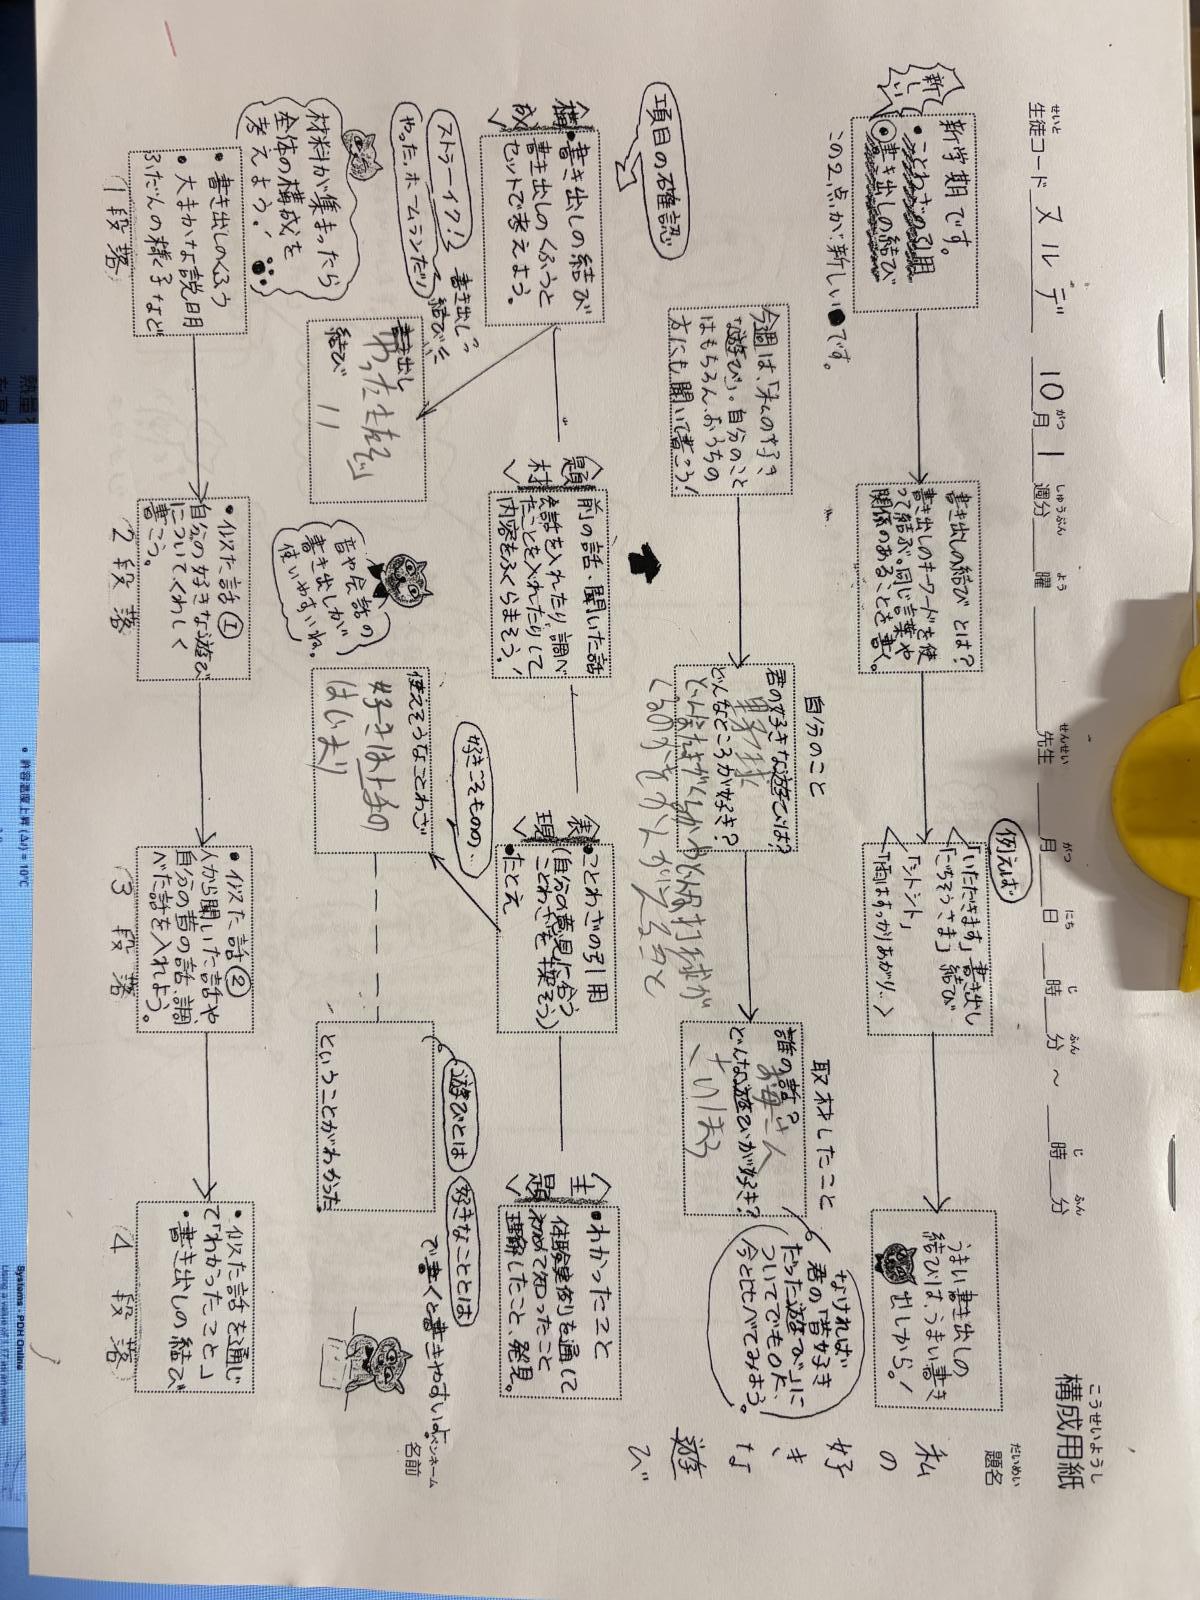 こうせいようし
構成用紙
せいと
生徒コード スルデ 10月 1週分 曜 先生 月 日 時 分 ～ 時 分
がつ しゅうぶん よう せんせい がつ にち じ ふん じ ふん
だいめい
題名
私の好きな遊び
新しい
新学期です。
・ことわざの引用
書き出しの結び
この2点が新しい
です。
書き出しの結びとは?
書き出しのキーワードを使
って結ぶ。同じ言葉や
関係のあることを書く。
例えば
「いただきます」書き出し
「ごちそうさま」結び
「シトシト」
「雨はすっかりあがり…」
うまい書き出しの
結びは、うまい書き
出しから!
項目の確認
今週は、「私の好き
な遊び」。自分のこと
はもちろん、おうちの
方にも聞いて書こう!
自分のこと
君の好きな遊びは?
どんなところが好き?
野球
取材したこと
誰の話?
どんな遊びが好き?
お母さん
なければ
君の「昔好き
だった遊び」に
ついてでもOK、
今と比べてみよう。
構成
・書き出しの結び
書き出しのくふうと
セットで考えよう。
題材
前の話・聞いた話
会話を入れたり、調べ
たことを入れたりして
内容をふくらまそう!
表現
・ことわざの引用
(自分の意見に合う
ことわざを探そう)
・たとえ
主題
・わかったこと
体験実例を通して
初めて知ったこと
理解したこと、発見。
ストラーイク!?
やった、ホームランだ!!
書き出し?
結びに
書き出し
結び
好きこそものの…
使えそうなことわざ
好きは上手の
はじまり
遊びとは
好きなこととは
で書くと書きやすいよ
ということがわかった。
ペンネーム
名前
材料が集まったら
全体の構成を
考えよう!
音や会話の
書き出しが
使いやすいね。
・書き出しのくふう
・大まかな説明
ふだんの様子など
1段落
・似た話①
自分の好きな遊び
についてくわしく
書こう。
2段落
・似た話②
人から聞いた話や
自分の昔の話、調
べた話を入れよう。
3段落
・似た話を通じ
て「わかったこと」
・書き出しの結び
4段落
• 許容温度上昇 (Δt) = 10°C
Systems - PDH Online